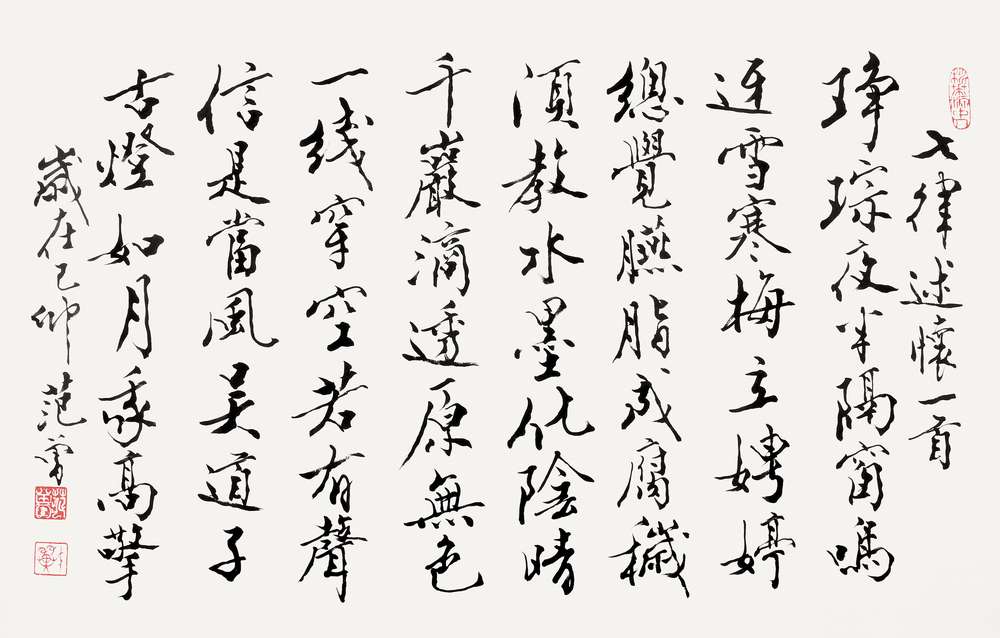 七律述懷一首
琤琮夜半隔窗鳴
迓雪寒梅立娉婷
總覺臙脂成腐穢
須教水墨化陰晴
千巖滴透原無色
一线穿空若有聲
信是當風吳道子
古燈如月我高擎
歲在己卯 范曾